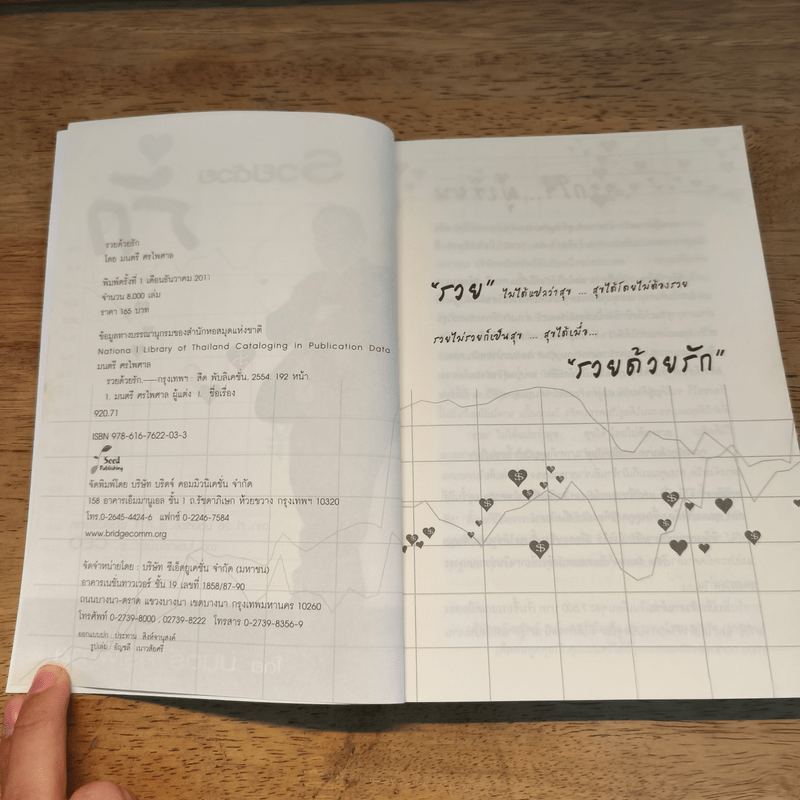 รวยด้วยรัก
โดย มนตรี ศรไพศาล
พิมพ์ครั้งที่ 1 เดือนธันวาคม 2011
จำนวน 8,000 เล่ม
ราคา 165 บาท
ข้อมูลทางบรรณานุกรมของสำนักหอสมุดแห่งชาติ
Nationa l Library of Thailand Cataloging in Publication Data
มนตรี ศรไพศาล
รวยด้วยรัก.—กรุงเทพฯ : สีด พับลิเคชั่น, 2554. 192 หน้า.
1. มนตรี ศรไพศาล ผู้แต่ง I. ชื่อเรื่อง
920.71
ISBN 978-616-7622-03-3
Seed
Publishing
จัดพิมพ์โดย บริษัท บริดจ์ คอมมิวนิเคชั่น จำกัด
158 อาคารเอ็มมานูเอล ชั้น 1 ถ.รัชดาภิเษก ห้วยขวาง กรุงเทพฯ 10320
โทร.0-2645-4424-6 แฟกซ์ 0-2246-7584
www.bridgecomm.org
จัดจำหน่ายโดย : บริษัท ซีเอ็ดยูเคชั่น จำกัด (มหาชน)
อาคารเนชั่นทาวเวอร์ ชั้น 19 เลขที่ 1858/87-90
ถนนบางนา-ตราด แขวงบางนา เขตบางนา กรุงเทพมหานคร 10260
โทรศัพท์ 0-2739-8000 , 02739-8222 โทรสาร 0-2739-8356-9
ออกแบบปก : ประทาน สิงห์จานุสงค์
รูปเล่ม / อัญชลี เนาวลัยศรี
"รวย" ไม่ได้แปลว่าสุข ... สุขได้โดยไม่ต้องรวย
รวยไม่รวยก็เป็นสุข ... สุขได้เมื่อ...
"รวยด้วยรัก"